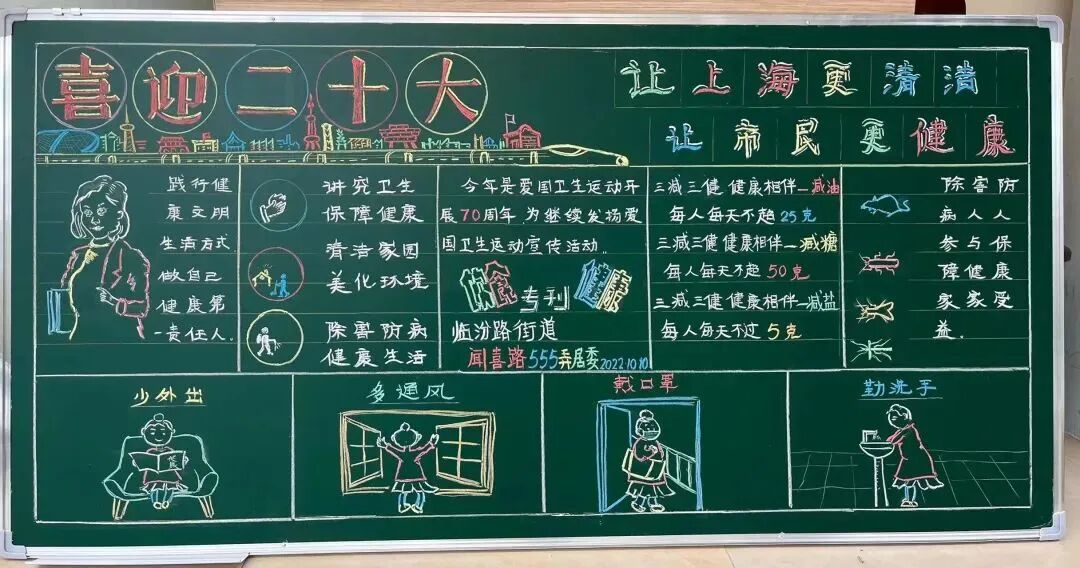 喜迎二十大
让上海更清
让市民更健康
践行健
康文明
生活方式
做自己
健康第
一责任人.
讲究卫生
保障健康
清洁家园
美化环境
除害防病
健康生活
今年是爱国卫生运动开
展70周年 为继续发扬爱
国卫生运动宣传活动.
专刊
临汾路街道
闻喜路555弄居委2022.10.10
三减三健 健康相伴—减油
每人每天不超25克
三减三健 健康相伴—减糖
每人每天不超50克
三减三健 健康相伴—减盐
每人每天不过5克
除害防
病人人
参与保
障健康
家家受
益.
少外出
多通风
戴口罩
勤洗手